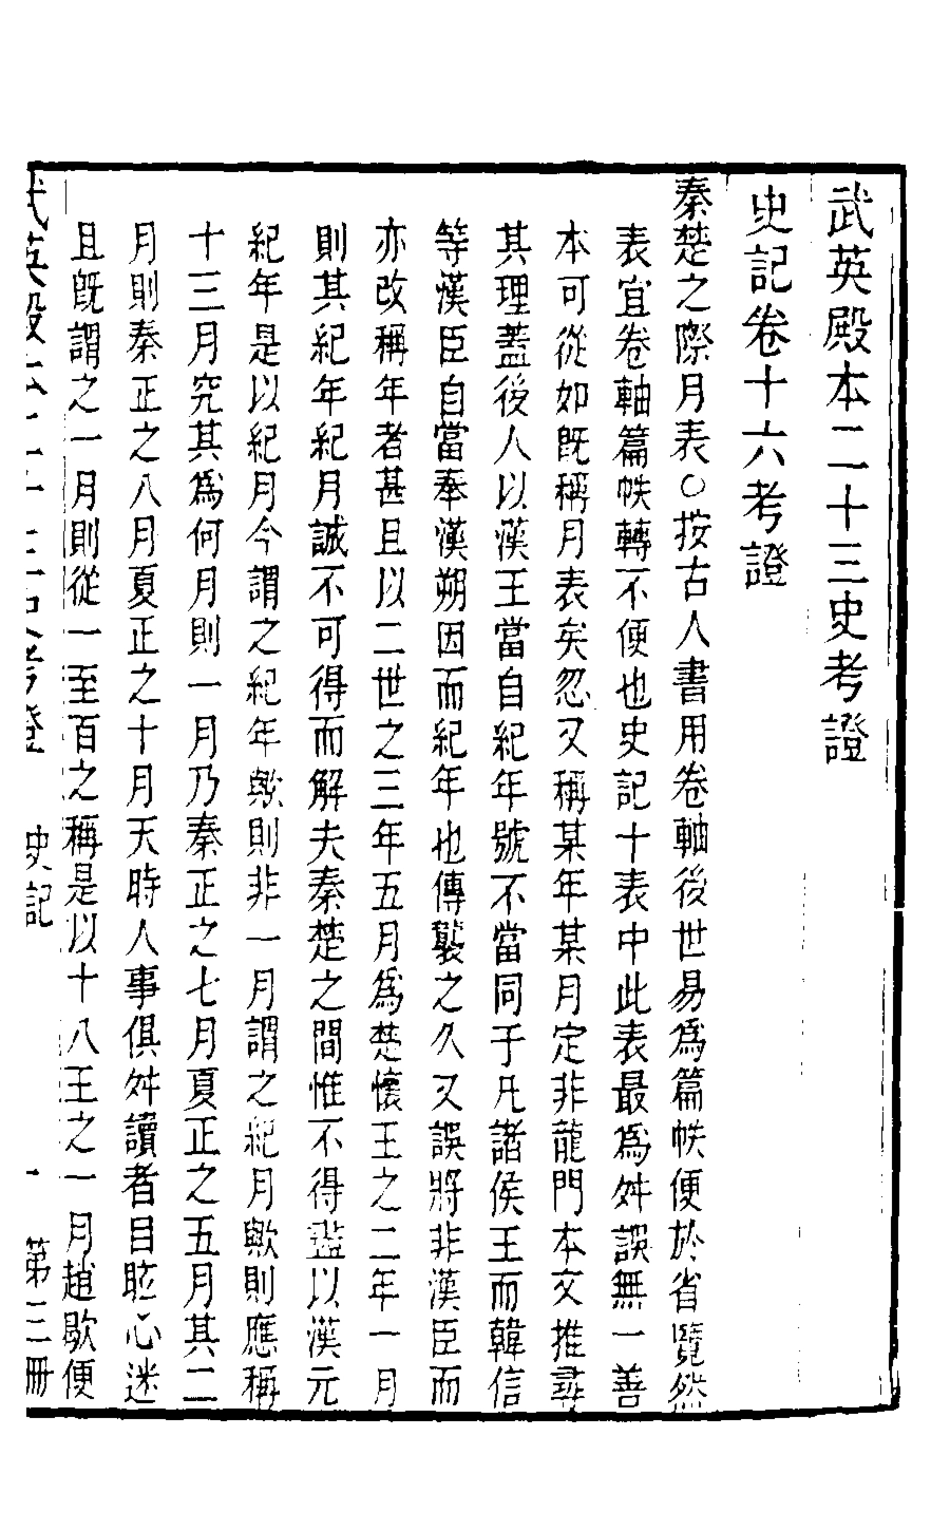 武英殿本二十三史考證
史記卷十六考證
秦楚之際月表○按古人書用卷軸後世易爲篇帙便於省覽然
表宜卷軸篇帙轉不便也史記十表中此表最爲舛誤無一善
本可從如旣稱月表矣忽又稱某年某月定非龍門本文推尋
其理蓋後人以漢王當自紀年號不當同于凡諸侯王而韓信
等漢臣自當奉漢朔因而紀年也傳襲之久又誤將非漢臣而
亦改稱年者甚且以二世之三年五月爲楚懷王之二年一月
則其紀年紀月誠不可得而解夫秦楚之間惟不得盡以漢元
紀年是以紀月今謂之紀年歟則非一月謂之紀月歟則應稱
十三月究其爲何月則一月乃秦正之七月夏正之五月其二
月則秦正之八月夏正之十月天時人事俱舛讀者目眩心迷
且旣謂之一月則從一至百之稱是以十八王之一月趙歇便
武英殿本二十三史考證 史記 一 第三冊